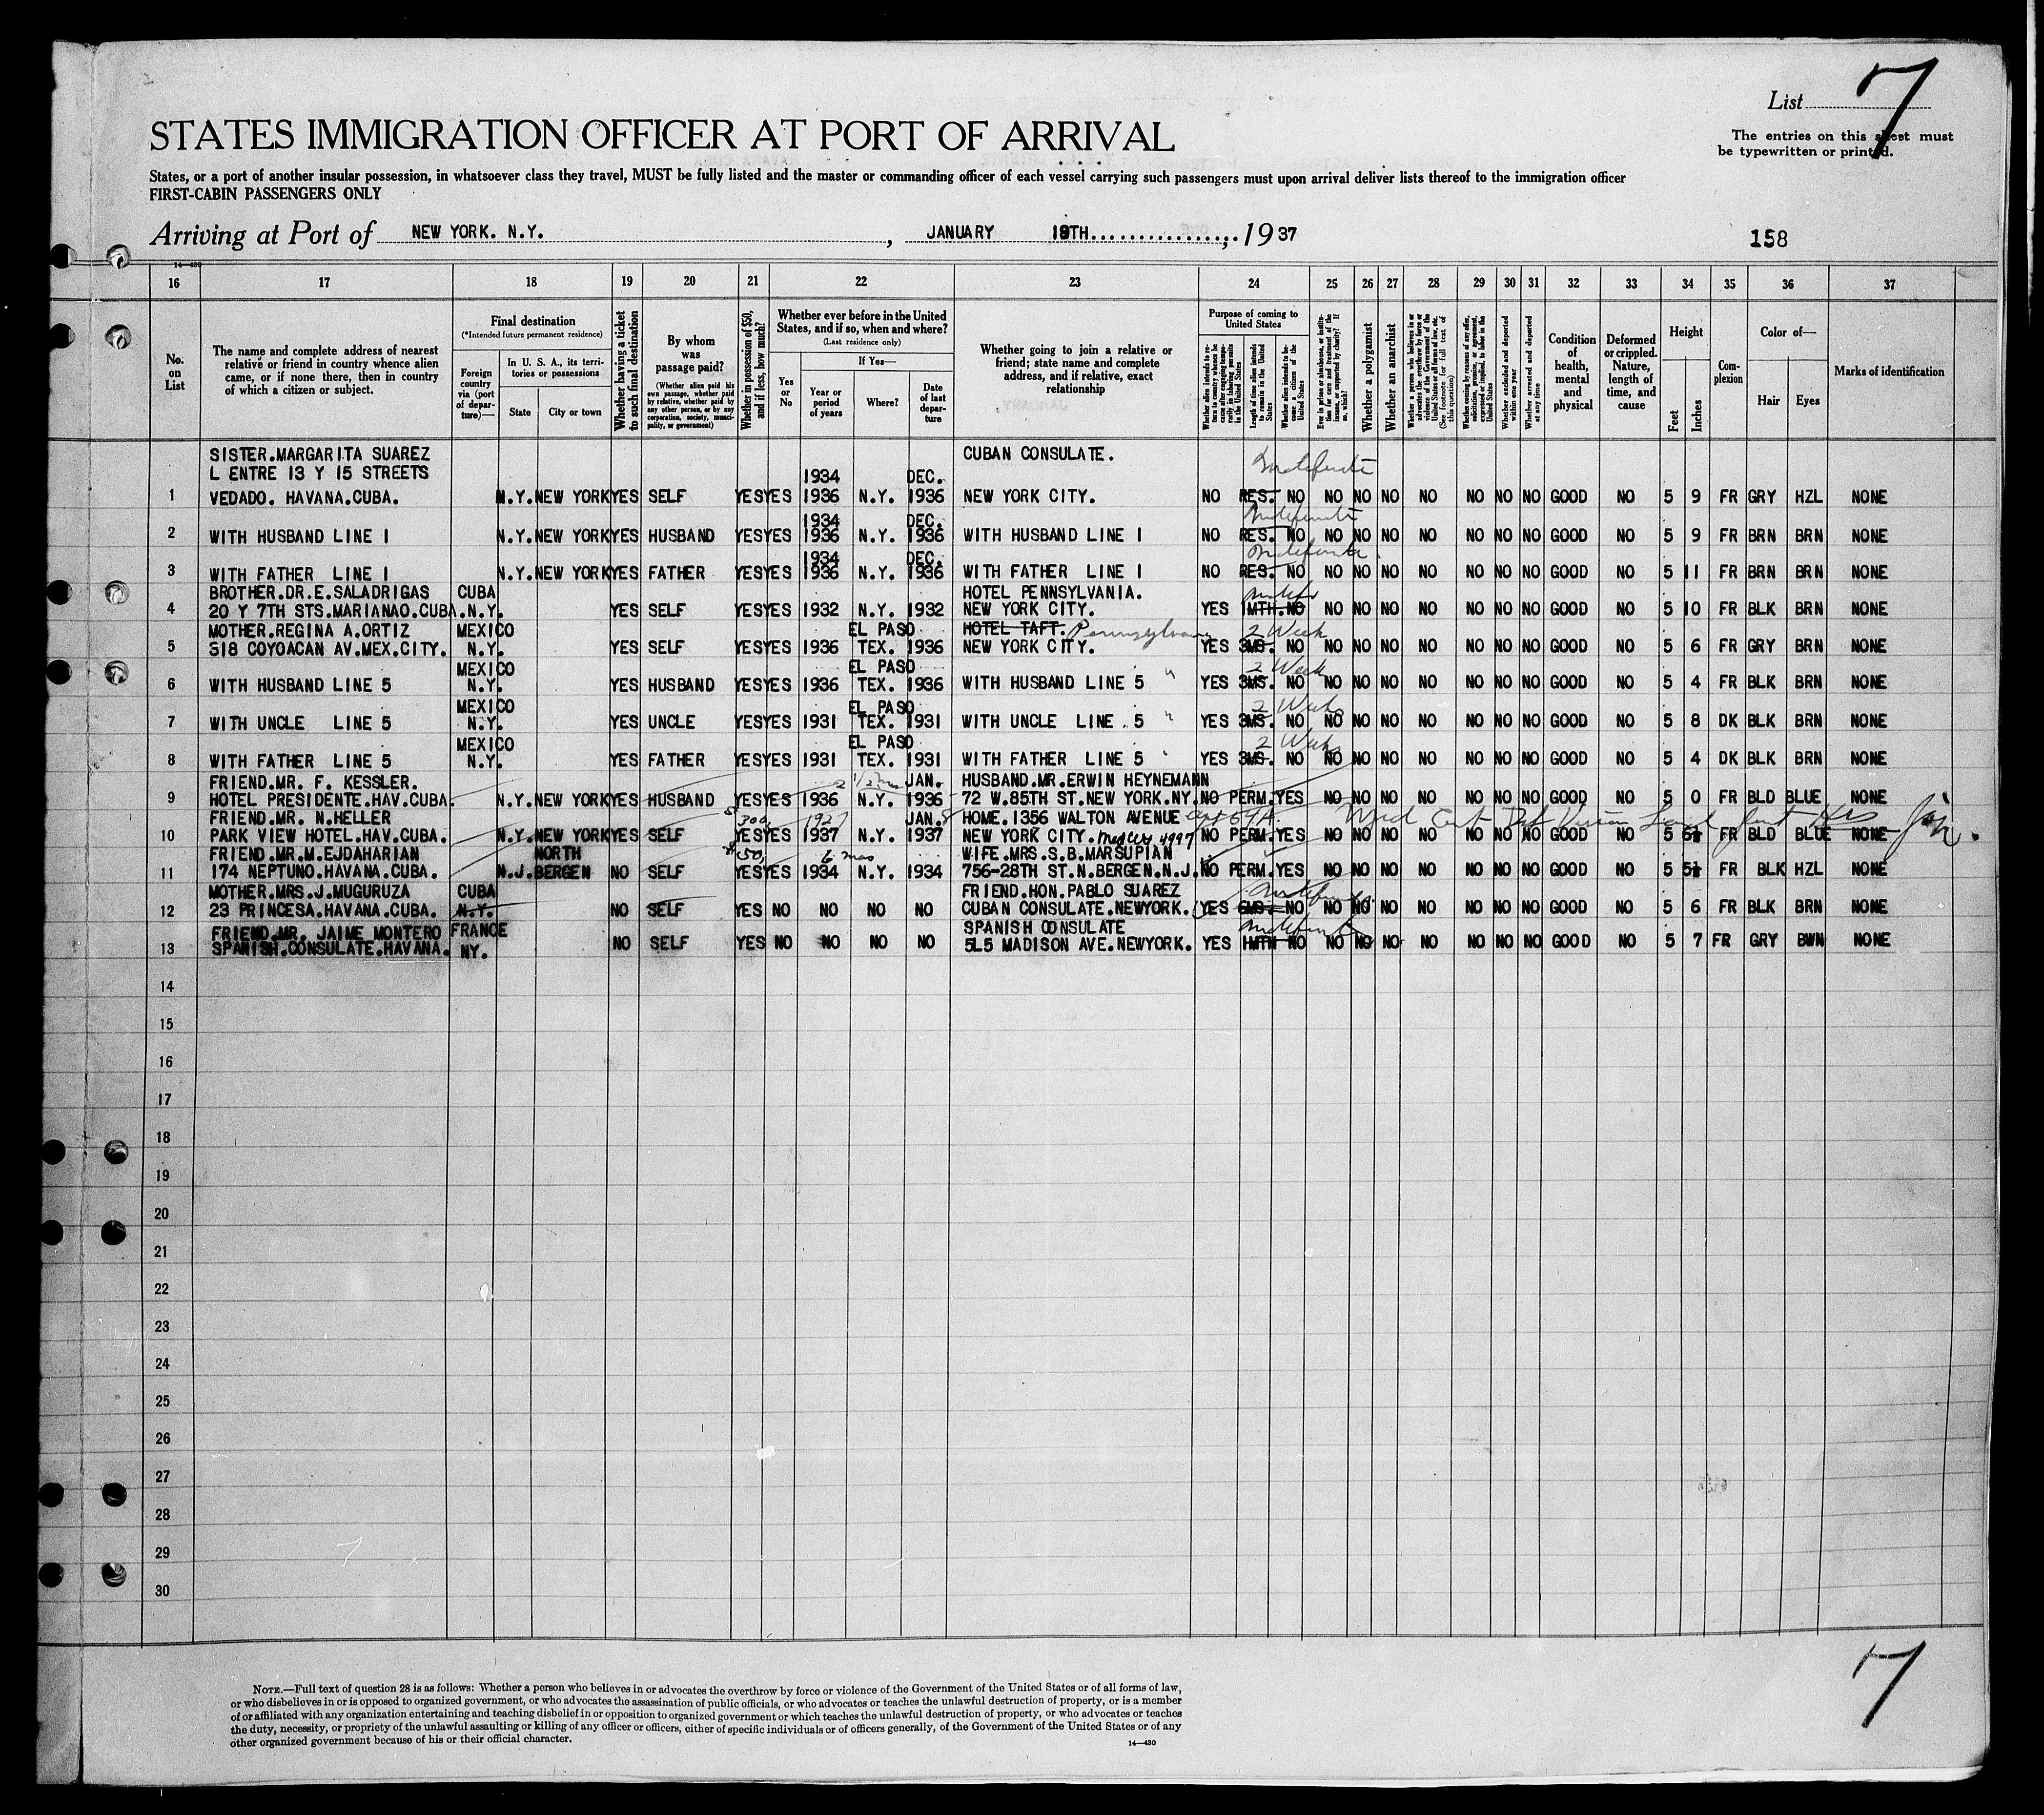 List 7
The entries on this sheet must
be typewritten or printed.
STATES IMMIGRATION OFFICER AT PORT OF ARRIVAL
States, or a port of another insular possession, in whatsoever class they travel, MUST be fully listed and the master or commanding officer of each vessel carrying such passengers must upon arrival deliver lists thereof to the immigration officer
FIRST-CABIN PASSENGERS ONLY
Arriving at Port of NEW YORK. N.Y. , JANUARY 19TH , 19 37
158
14—430
16 17 18 19 20 21 22 23 24 25 26 27 28 29 30 31 32 33 34 35 36 37
No. on List
The name and complete address of nearest relative or friend in country whence alien came, or if none there, then in country of which a citizen or subject.
Final destination
(*Intended future permanent residence)
Foreign country via (port of departure)—
In U. S. A., its territories or possessions
State
City or town
Whether having a ticket to such final destination
By whom was passage paid?
(Whether alien paid his own passage, whether paid by relative, whether paid by any other person, or by any corporation, society, municipality, or government)
Whether in possession of $50, and if less, how much?
Whether ever before in the United States, and if so, when and where?
(Last residence only)
Yes or No
If Yes—
Year or period of years
Where?
Date of last departure
Whether going to join a relative or friend; state name and complete address, and if relative, exact relationship
Purpose of coming to United States
Length of time alien intends to remain in the United States
Whether alien intends to become a citizen of the United States
Whether a polygamist
Whether an anarchist
Whether excluded and deported within one year
Whether arrested and deported at any time
Condition of health, mental and physical
Deformed or crippled. Nature, length of time, and cause
Height
Feet
Inches
Complexion
Color of—
Hair
Eyes
Marks of identification
SISTER.MARGARITA SUAREZ CUBAN CONSULATE.
L ENTRE 13 Y 15 STREETS 1934 DEC. Indefinite
1 VEDADO. HAVANA.CUBA. N.Y. NEW YORK YES SELF YES YES 1936 N.Y. 1936 NEW YORK CITY. NO RES. NO NO NO NO NO NO NO NO GOOD NO 5 9 FR GRY HZL NONE
1934 DEC. Indefinite
2 WITH HUSBAND LINE 1 N.Y. NEW YORK YES HUSBAND YES YES 1936 N.Y. 1936 WITH HUSBAND LINE 1 NO RES. NO NO NO NO NO NO NO NO GOOD NO 5 9 FR BRN BRN NONE
1934 DEC. Indefinite
3 WITH FATHER LINE 1 N.Y. NEW YORK YES FATHER YES YES 1936 N.Y. 1936 WITH FATHER LINE 1 NO RES. NO NO NO NO NO NO NO NO GOOD NO 5 11 FR BRN BRN NONE
BROTHER.DR.E.SALADRIGAS CUBA HOTEL PENNSYLVANIA. Indef
4 20 Y 7TH STS.MARIANAO.CUBA. N.Y. YES SELF YES YES 1932 N.Y. 1932 NEW YORK CITY. YES 1MTH. NO NO NO NO NO NO NO NO GOOD NO 5 10 FR BLK BRN NONE
MOTHER.REGINA A.ORTIZ MEXICO EL PASO HOTEL TAFT. Pennsylvania 2 Week
5 318 COYOACAN AV.MEX.CITY. N.Y. YES SELF YES YES 1936 TEX. 1936 NEW YORK CITY. YES 3MS. NO NO NO NO NO NO NO NO GOOD NO 5 6 FR GRY BRN NONE
MEXICO EL PASO 2 Week
6 WITH HUSBAND LINE 5 N.Y. YES HUSBAND YES YES 1936 TEX. 1936 WITH HUSBAND LINE 5 " YES 3MS. NO NO NO NO NO NO NO NO GOOD NO 5 4 FR BLK BRN NONE
MEXICO EL PASO 2 Weeks
7 WITH UNCLE LINE 5 N.Y. YES UNCLE YES YES 1931 TEX. 1931 WITH UNCLE LINE 5 " YES 3MS. NO NO NO NO NO NO NO NO GOOD NO 5 8 DK BLK BRN NONE
MEXICO EL PASO 2 Weeks
8 WITH FATHER LINE 5 N.Y. YES FATHER YES YES 1931 TEX. 1931 WITH FATHER LINE 5 " YES 3MS. NO NO NO NO NO NO NO NO GOOD NO 5 4 DK BLK BRN NONE
FRIEND.MR. F. KESSLER. 2 1/2 mos JAN. HUSBAND.MR.ERWIN HEYNEMANN
9 HOTEL PRESIDENTE.HAV.CUBA. N.Y. NEW YORK YES HUSBAND YES YES 1936 N.Y. 1936 72 W.85TH ST.NEW YORK.NY. NO PERM. YES NO NO NO NO NO NO NO GOOD NO 5 0 FR BLD BLUE NONE
FRIEND.MR. N.HELLER $300, 1927 JAN.8 HOME.1356 WALTON AVENUE Med Cert Def Vision
10 PARK VIEW HOTEL.HAV.CUBA. N.Y. NEW YORK YES SELF YES YES 1937 N.Y. 1937 NEW YORK CITY. NO PERM. YES NO NO NO NO NO NO NO GOOD NO 5 5½ FR BLD BLUE NONE
FRIEND.MR.M.EJDAHARIAN NORTH $50, 6 mos WIFE.MRS.S.B.MARSUPIAN
11 174 NEPTUNO.HAVANA.CUBA. N.J. BERGEN NO SELF YES YES 1934 N.Y. 1934 756-28TH ST.N.BERGEN.N.J. NO PERM. YES NO NO NO NO NO NO NO GOOD NO 5 5½ FR BLK HZL NONE
MOTHER.MRS.J.MUGURUZA CUBA FRIEND.HON.PABLO SUAREZ Indefinite
12 23 PRINCESA.HAVANA.CUBA. N.Y. NO SELF YES NO NO NO NO CUBAN CONSULATE.NEWYORK. YES 6MS. NO NO NO NO NO NO NO NO GOOD NO 5 6 FR BLK BRN NONE
FRIEND.MR. JAIME MONTERO FRANCE SPANISH CONSULATE Indefinite
13 SPANISH.CONSULATE.HAVANA. NY. NO SELF YES NO NO NO NO 515 MADISON AVE.NEWYORK. YES 1MTH NO NO NO NO NO NO NO NO GOOD NO 5 7 FR GRY BWN NONE
14
15
16
17
18
19
20
21
22
23
24
25
26
27
28
29
30
7
NOTE.—Full text of question 28 is as follows: Whether a person who believes in or advocates the overthrow by force or violence of the Government of the United States or of all forms of law,
or who disbelieves in or is opposed to organized government, or who advocates the assassination of public officials, or who advocates or teaches the unlawful destruction of property, or is a member
of or affiliated with any organization entertaining and teaching disbelief in or opposition to organized government or which teaches the unlawful destruction of property, or who advocates or teaches
the duty, necessity, or propriety of the unlawful assaulting or killing of any officer or officers, either of specific individuals or of officers generally, of the Government of the United States or of any
other organized government because of his or their official character.
14—430